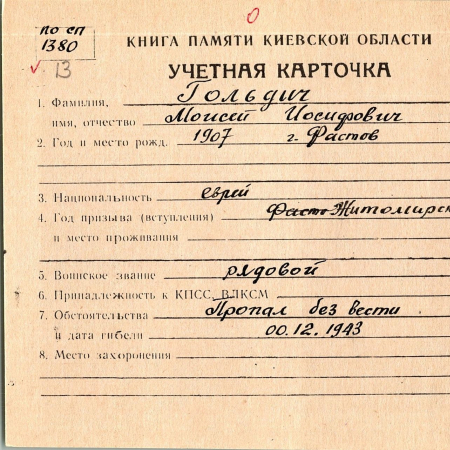 0
по сп
1380
13
КНИГА ПАМЯТИ КИЕВСКОЙ ОБЛАСТИ
УЧЕТНАЯ КАРТОЧКА
1. Фамилия, Гольдич
имя, отчество Моисей Иосифович
2. Год и место рожд. 1907 г. Фастов
3. Национальность еврей
4. Год призыва (вступления) Фасто-Житомирск
и место проживания
5. Воинское звание рядовой
6. Принадлежность к КПСС, ВЛКСМ
7. Обстоятельства Пропал без вести
и дата гибели 00.12.1943
8. Место захоронения